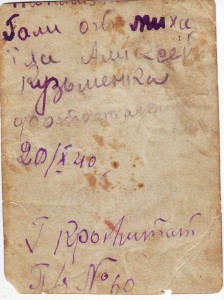 Гали от Миха
ла Алексей
Кузьменка
20/X 40
Г Кронштат
П/Я № 60